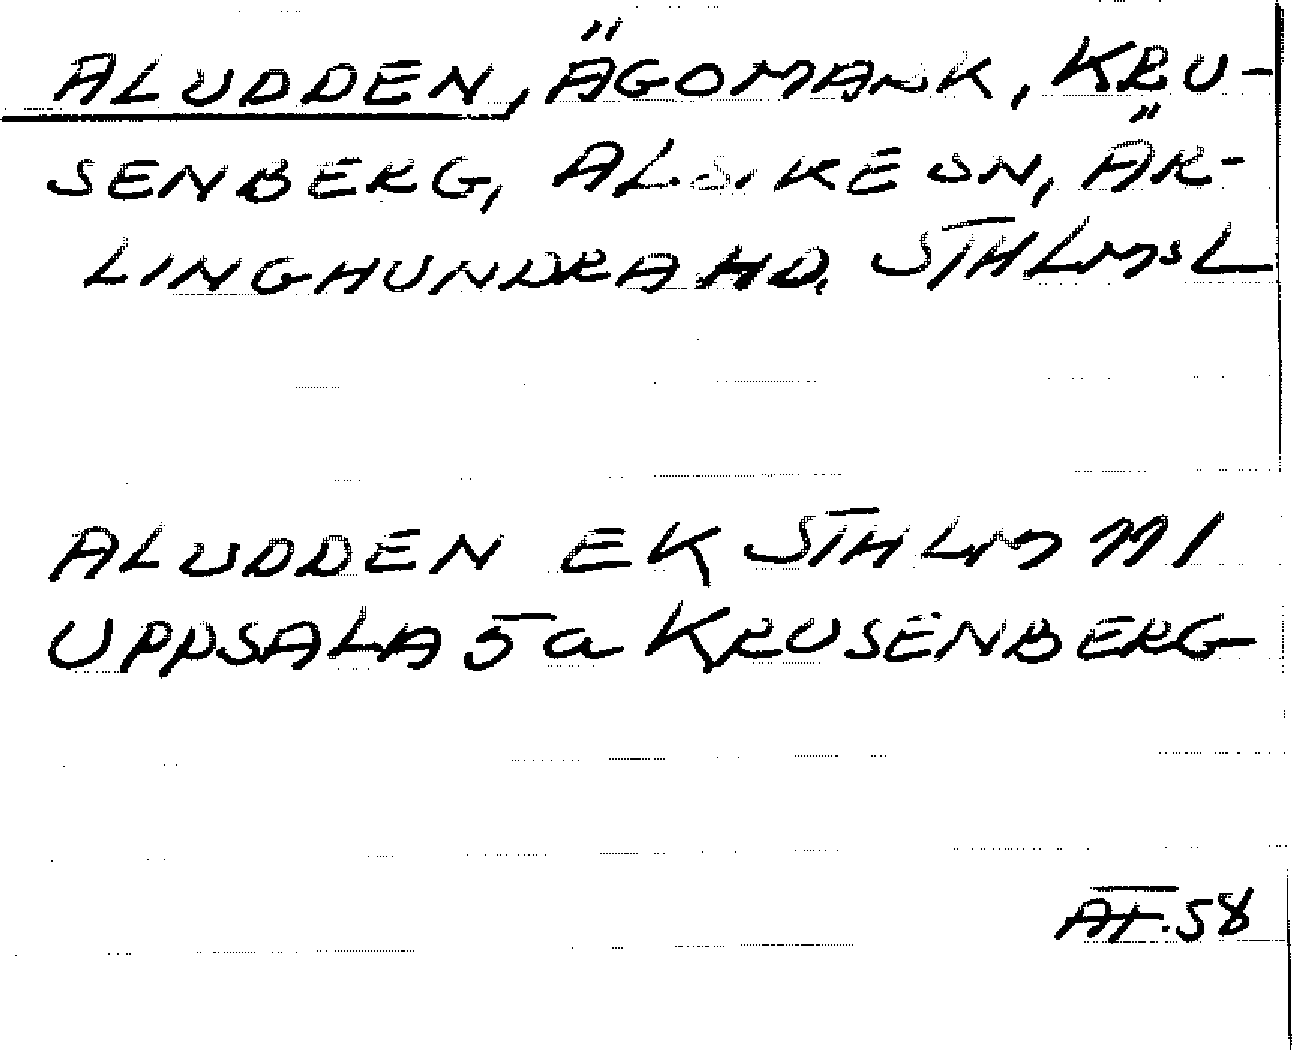 ALUDDEN, ÄGOMARK, KRU-
SENBERG, ALSIKE SN, ÄR-
LINGHUNDRA HD. STHLMSL
ALUDDEN EK STHLM 111
UPPSALA 5a KRUSENBERG
AF.58